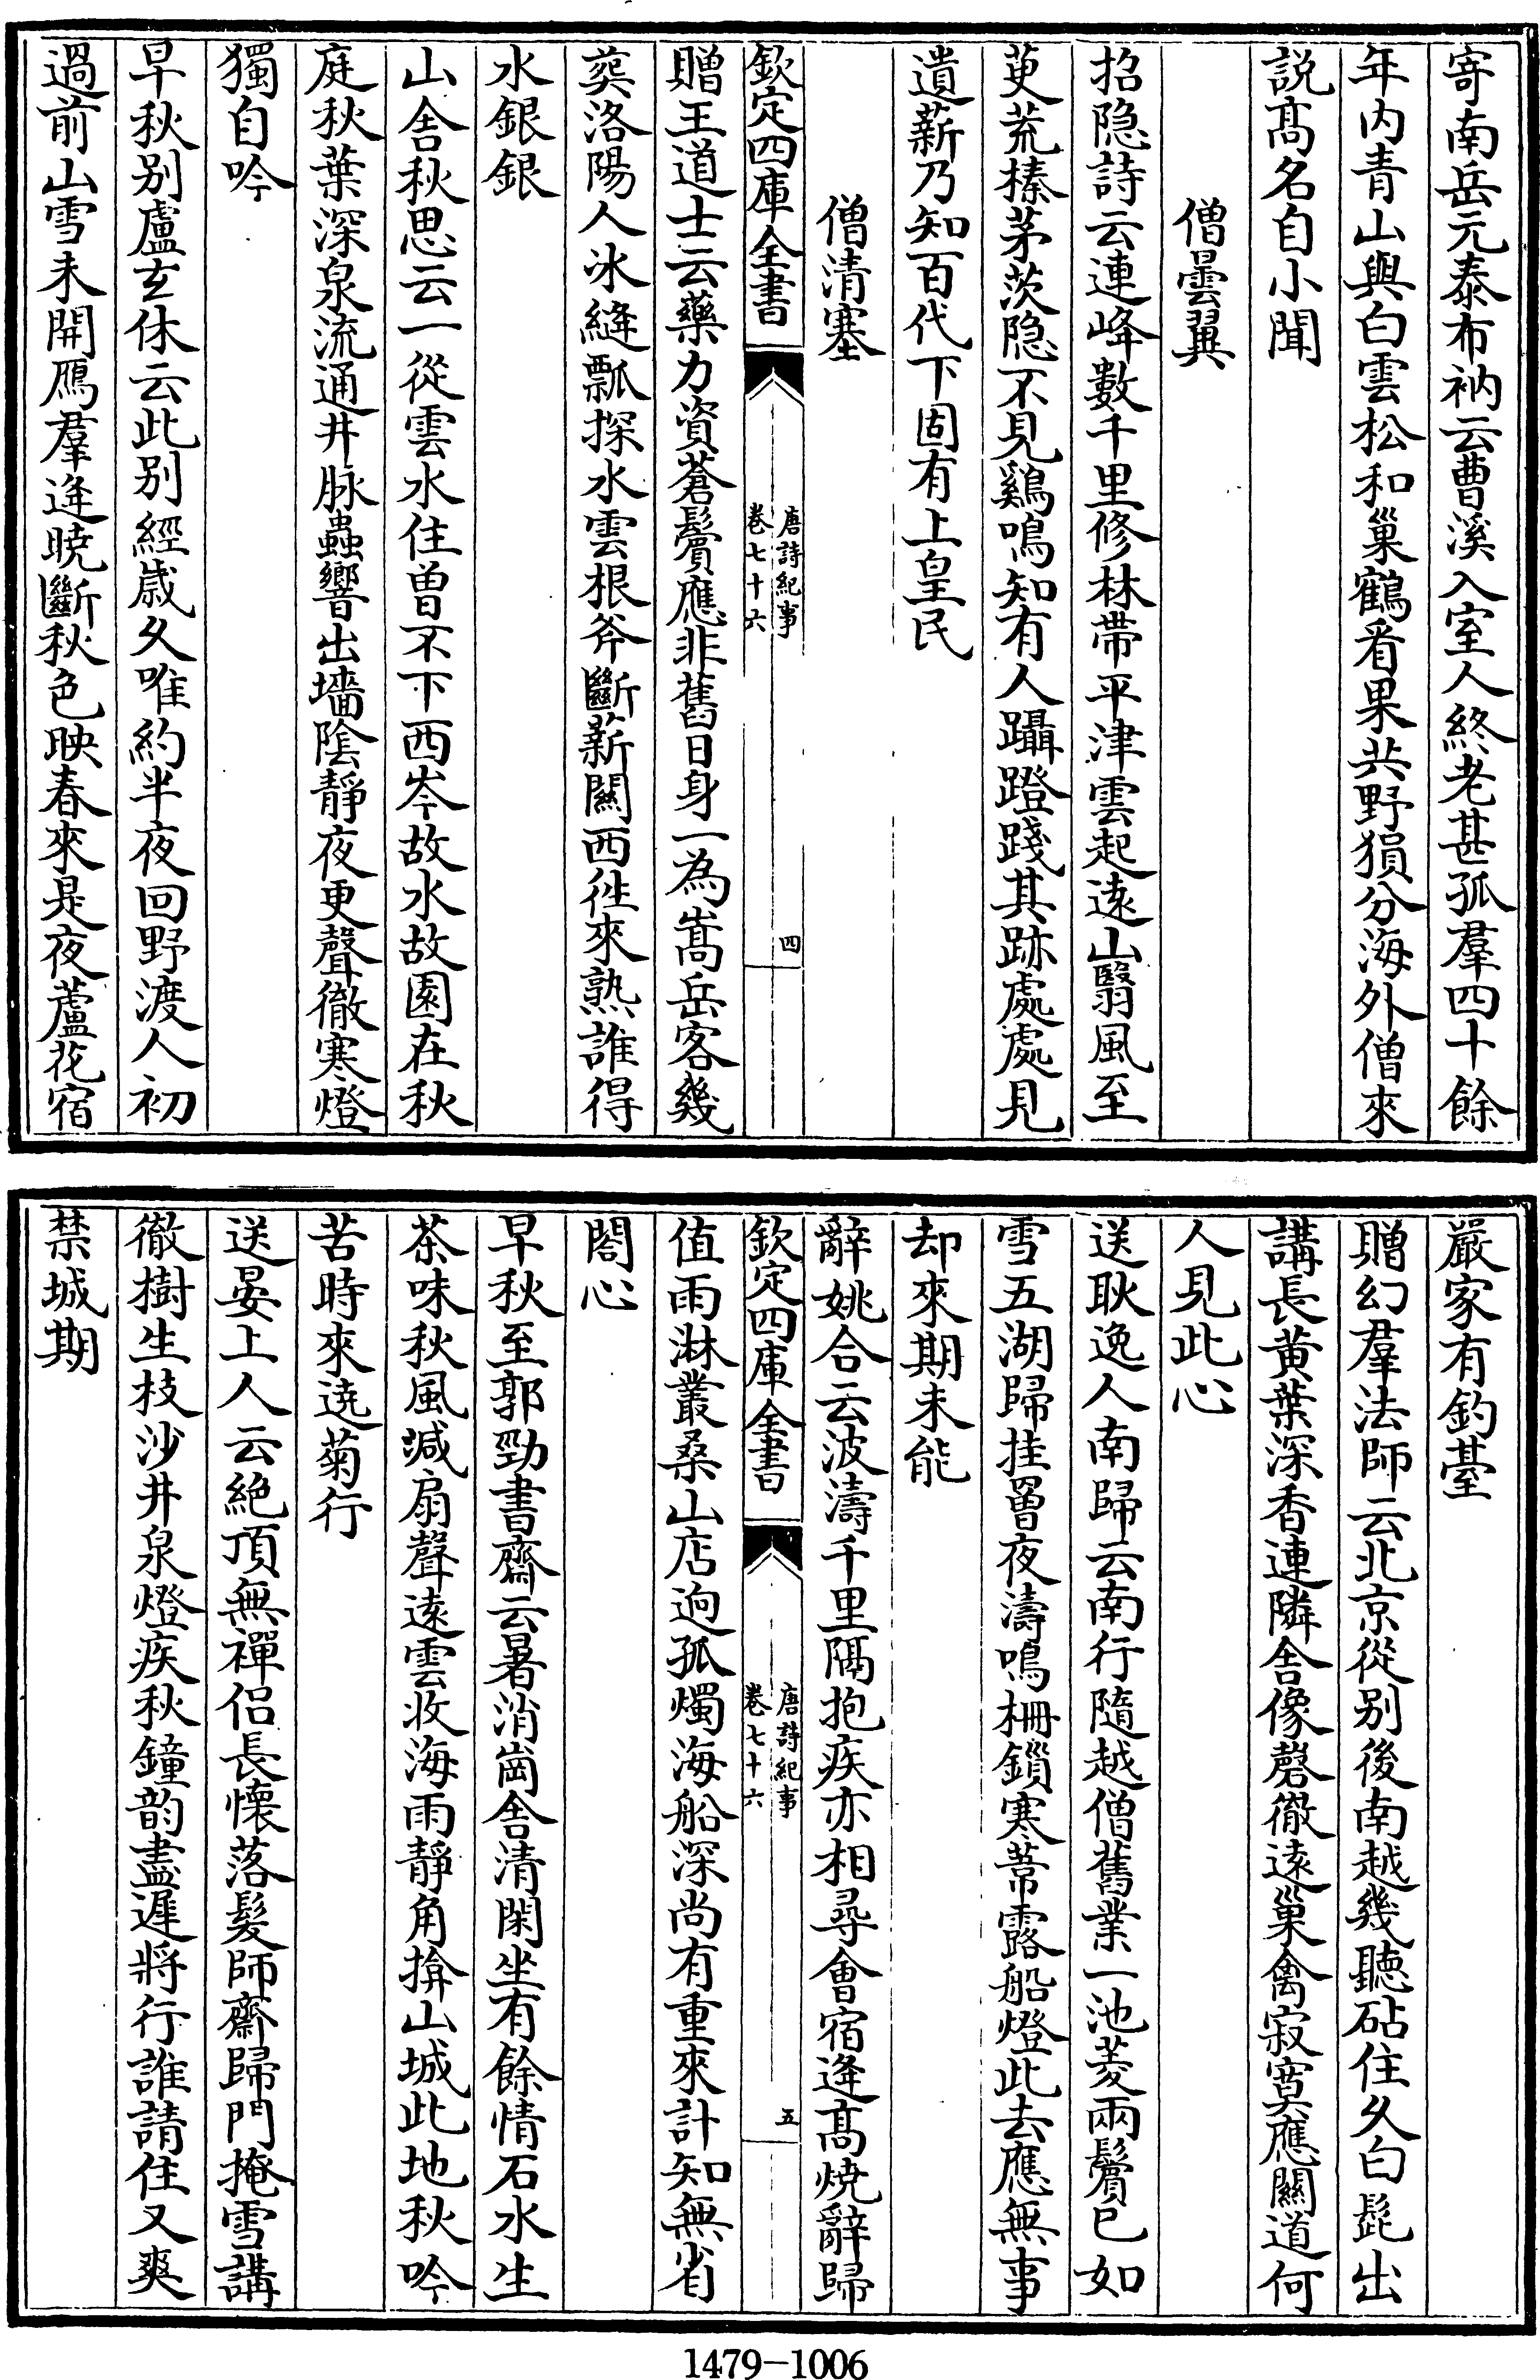 寄南岳元泰布衲云曹溪入室人終老甚孤羣四十餘
年内青山與白雲松和巢鶴看果共野猿分海外僧來
説髙名自小聞
僧曇翼
招隐詩云連峰數千里修林帶平津雲起逺山翳風至
莄荒榛茅茨隐不見鷄鳴知有人躡蹬踐其跡處處見
遺薪乃知百代下固有上皇民
僧清塞
欽定四庫全書
唐詩紀事
卷七十六
四
贈王道士云藥力資蒼鬢應非舊日身一為嵩岳客幾
葬洛陽人氷縫瓢探水雲根斧斷薪關西徃來熟誰得
水銀銀
山舎秋思云一從雲水住曽不下西岑故水故園在秋
庭秋葉深泉流通井脉蟲響出墻隂靜夜更聲徹寒燈
獨自吟
早秋别盧玄休云此别經嵗乆唯約半夜回野渡人初
過前山雪未開鴈羣逢曉斷秋色映春來是夜蘆花宿
嚴家有釣䑓
贈幻羣法師云北京從别後南越幾聽砧住乆白髭出
講長黄葉深香連隣舎像磬徹逺巢禽寂寞應關道何
人見此心
送耿逸人南歸云南行隨越僧舊業一池菱兩鬢已如
雪五湖歸挂罾夜濤鳴栅鎻寒葦露船燈此去應無事
却來期未能
辭姚合云波濤千里隔抱疾亦相尋㑹宿逢髙燒辭歸
欽定四庫全書
唐詩紀事
卷七十六
五
值雨淋叢桑山店逈孤燭海船深尚有重來計知無省
閣心
早秋至郭勁書齋云暑消崗舎清閑坐有餘情石水生
茶味秋風減扇聲逺雲收海雨靜角揜山城此地秋吟
苦時來遶菊行
送晏上人云絶頂無禪侣長懷落髮師齋歸門掩雪講
徹樹生枝沙井泉燈疾秋鐘韵盡遲將行誰請住又爽
禁城期
1479-1006